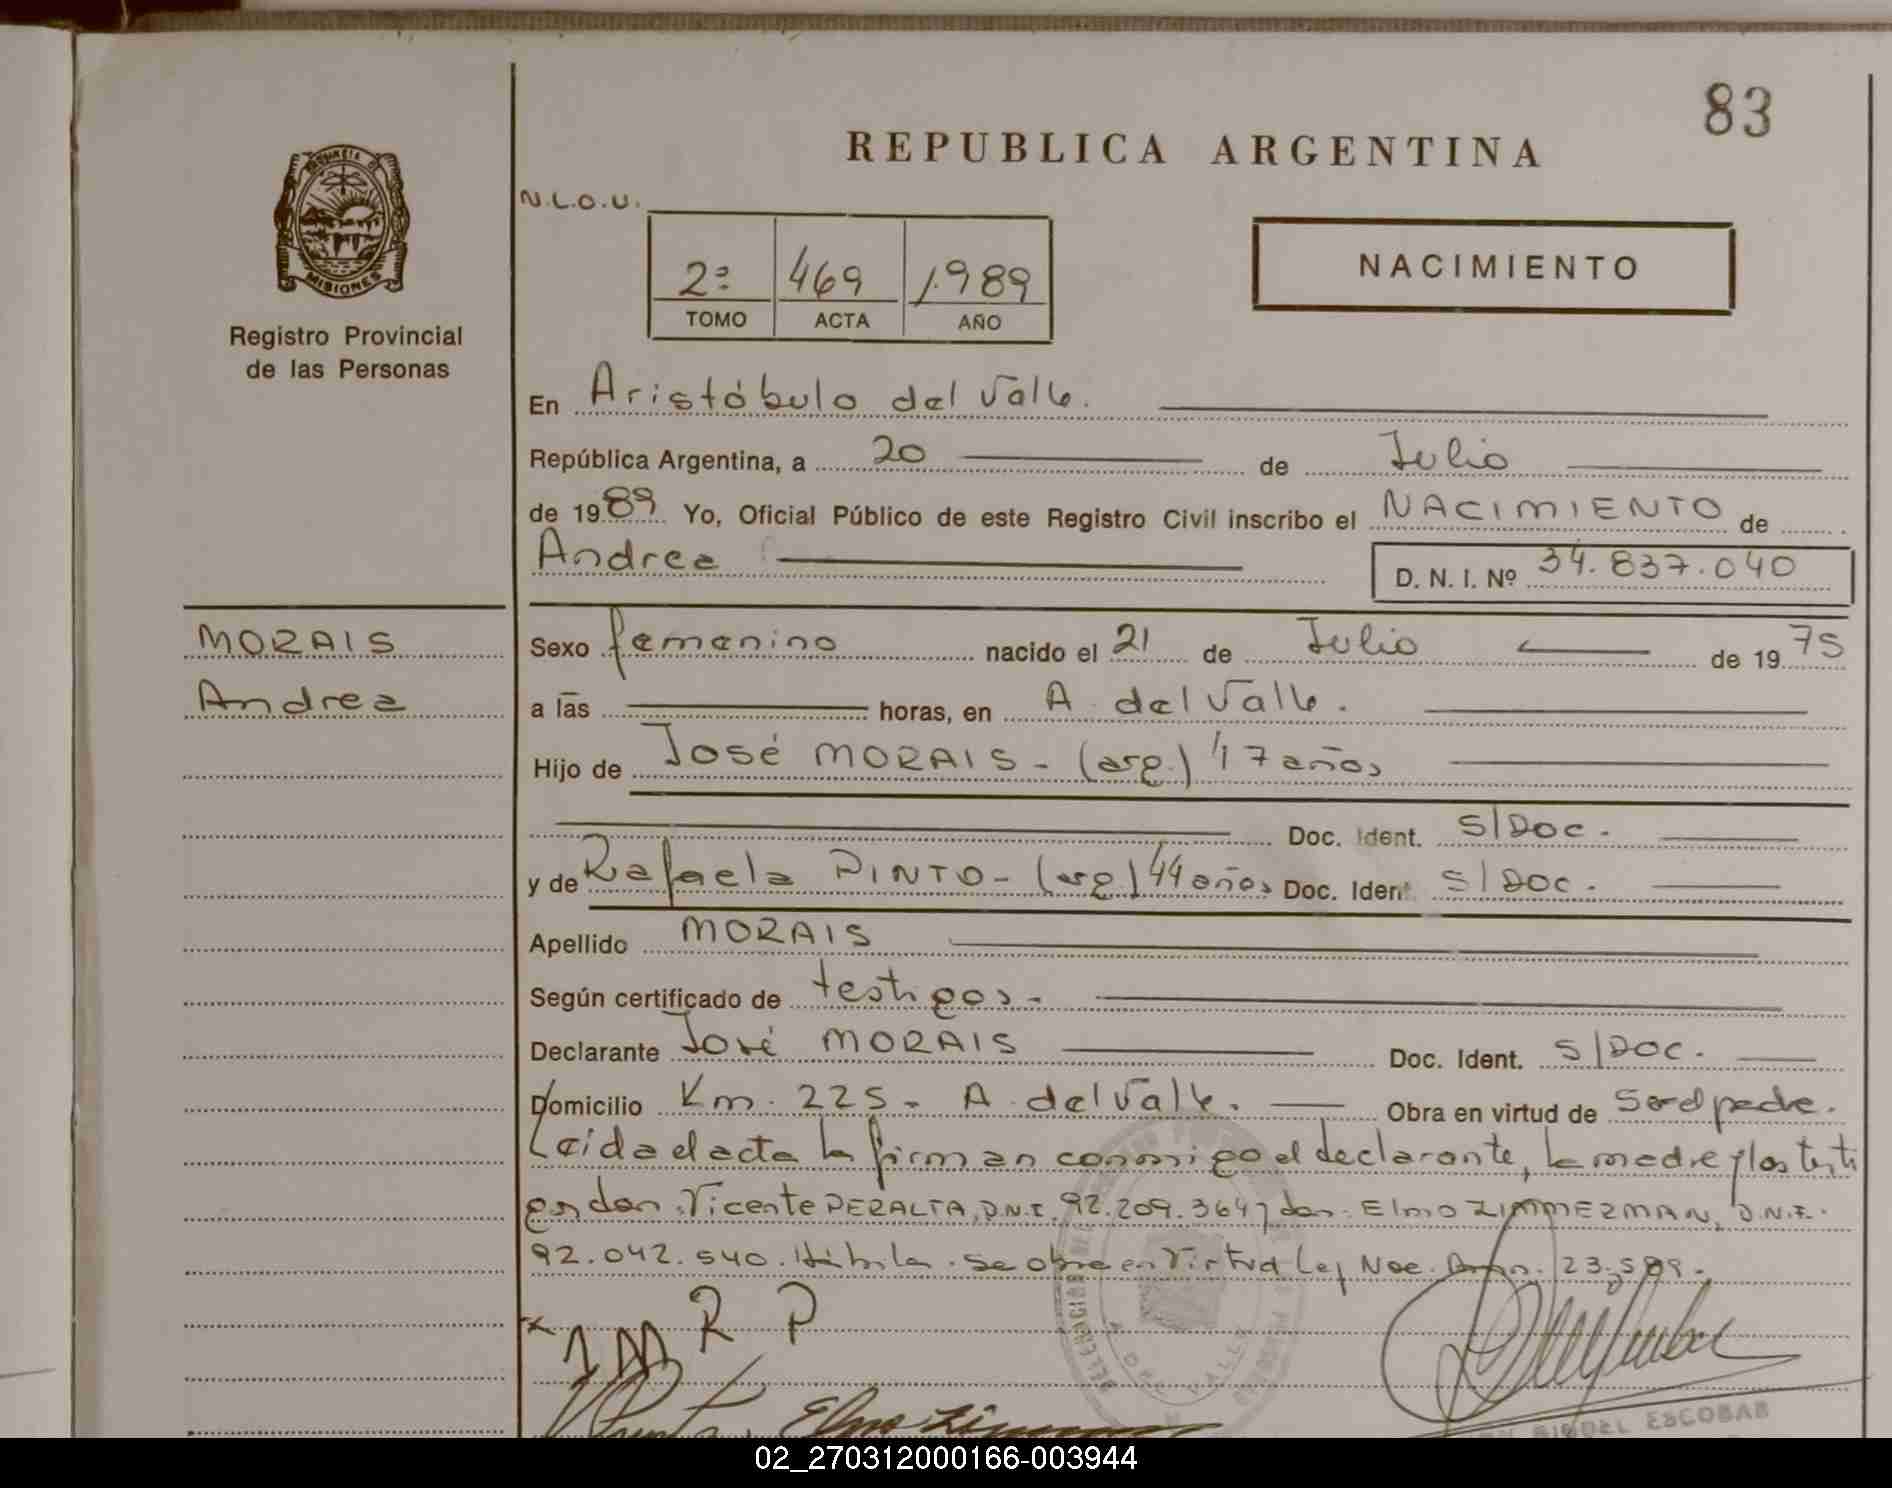 83
REPUBLICA ARGENTINA
N.L.O.U.
2º 469 1.989
TOMO ACTA AÑO
NACIMIENTO
MISIONES
Registro Provincial
de las Personas
En Aristóbulo del Valle.
República Argentina, a 20 de Julio
de 1989 Yo, Oficial Público de este Registro Civil inscribo el NACIMIENTO de
Andrea
D. N. I. Nº 34.837.040
MORAIS
Andrea
Sexo femenino nacido el 21 de Julio de 1975
a las horas, en A. del Valle.
Hijo de José MORAIS - (arg.) 47 años
Doc. Ident. S/Doc.
y de Rafaela PINTO - (arg.) 44 años Doc. Ident. S/Doc.
Apellido MORAIS
Según certificado de testigos.-
Declarante José MORAIS Doc. Ident. S/Doc.
Domicilio Km. 225 - A. del Valle. Obra en virtud de Ser el padre.
Leída el acta la firman conmigo el declarante, la madre y los testi
gos don: Vicente PERALTA, D.N.I. 92.209.364 y don: Elmo ZIMMERMAN, D.N.I.
92.042.540. Se obra en Virtud Ley Nac. 23.509.
x JM R P
ESCOBAR
02_270312000166-003944